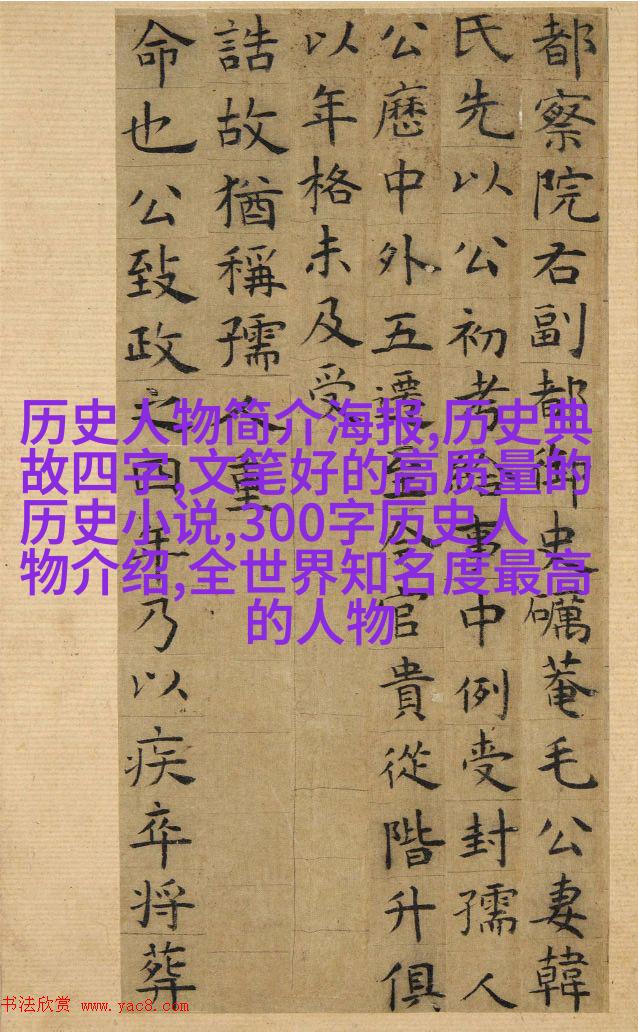 都察院右副都御史礪菴毛公妻韓
氏先以公初考給事中例受封孺人
公歷中外五遷至今官貴從階升俱
以年格未及受
誥故猶稱孺人重
命也公致政之四年乃以疾卒将葬
历史人物简介海报,历史典
故四字,文笔好的高质量的
历史小说,300字历史人
物介绍,全世界知名度最高
的人物
书法欣赏 www.yac8.com